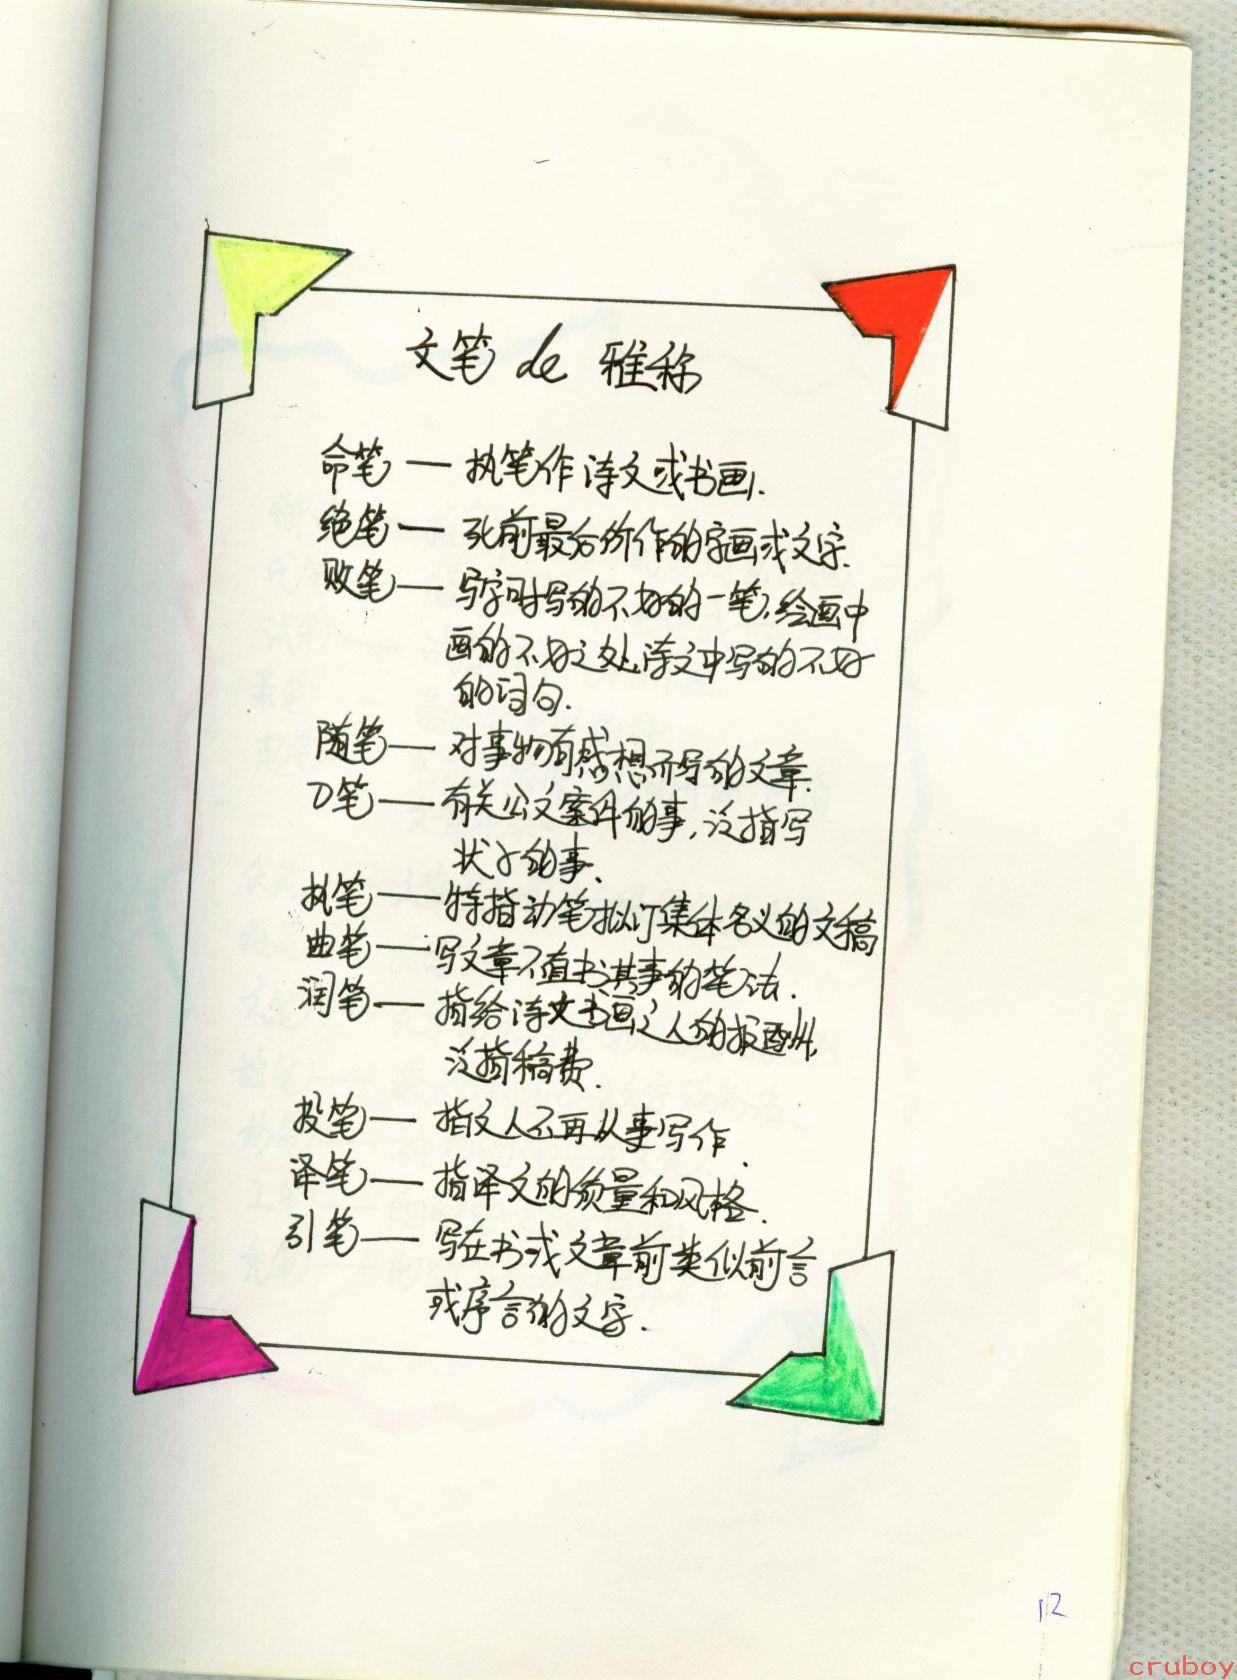 文笔 de 雅称
命笔 — 执笔作诗文或书画.
绝笔 — 死前最后所作的字画或文字.
败笔 — 写字时写的不好的一笔,绘画中
画的不好之处,诗文中写的不好
的词句.
随笔 — 对事物有感想而写的文章.
刀笔 — 有关公文案件的事,泛指写
状子的事.
执笔 — 特指动笔拟订集体名义的文稿
曲笔 — 写文章不直书其事的笔法.
润笔 — 指给诗文书画之人的报酬,
泛指稿费.
投笔 — 指文人不再从事写作.
译笔 — 指译文的质量和风格.
引笔 — 写在书或文章前类似前言
或序言的文字.
12
cruboy